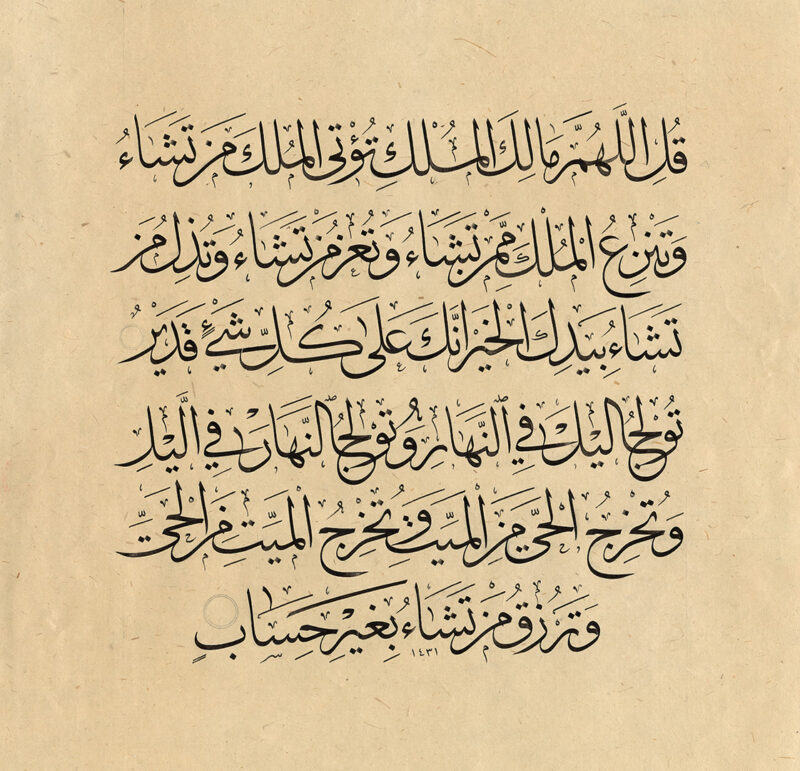 قُلِ اللَّهُمَّ مَالِكَ الْمُلْكِ تُؤْتِي الْمُلْكَ مَن تَشَاءُ
وَتَنزِعُ الْمُلْكَ مِمَّن تَشَاءُ وَتُعِزُّ مَن تَشَاءُ وَتُذِلُّ مَن
تَشَاءُ بِيَدِكَ الْخَيْرُ إِنَّكَ عَلَىٰ كُلِّ شَيْءٍ قَدِيرٌ
تُولِجُ اللَّيْلَ فِي النَّهَارِ وَتُولِجُ النَّهَارَ فِي اللَّيْلِ
وَتُخْرِجُ الْحَيَّ مِنَ الْمَيِّتِ وَتُخْرِجُ الْمَيِّتَ مِنَ الْحَيِّ
وَتَرْزُقُ مَن تَشَاءُ بِغَيْرِ حِسَابٍ
١٤٣١